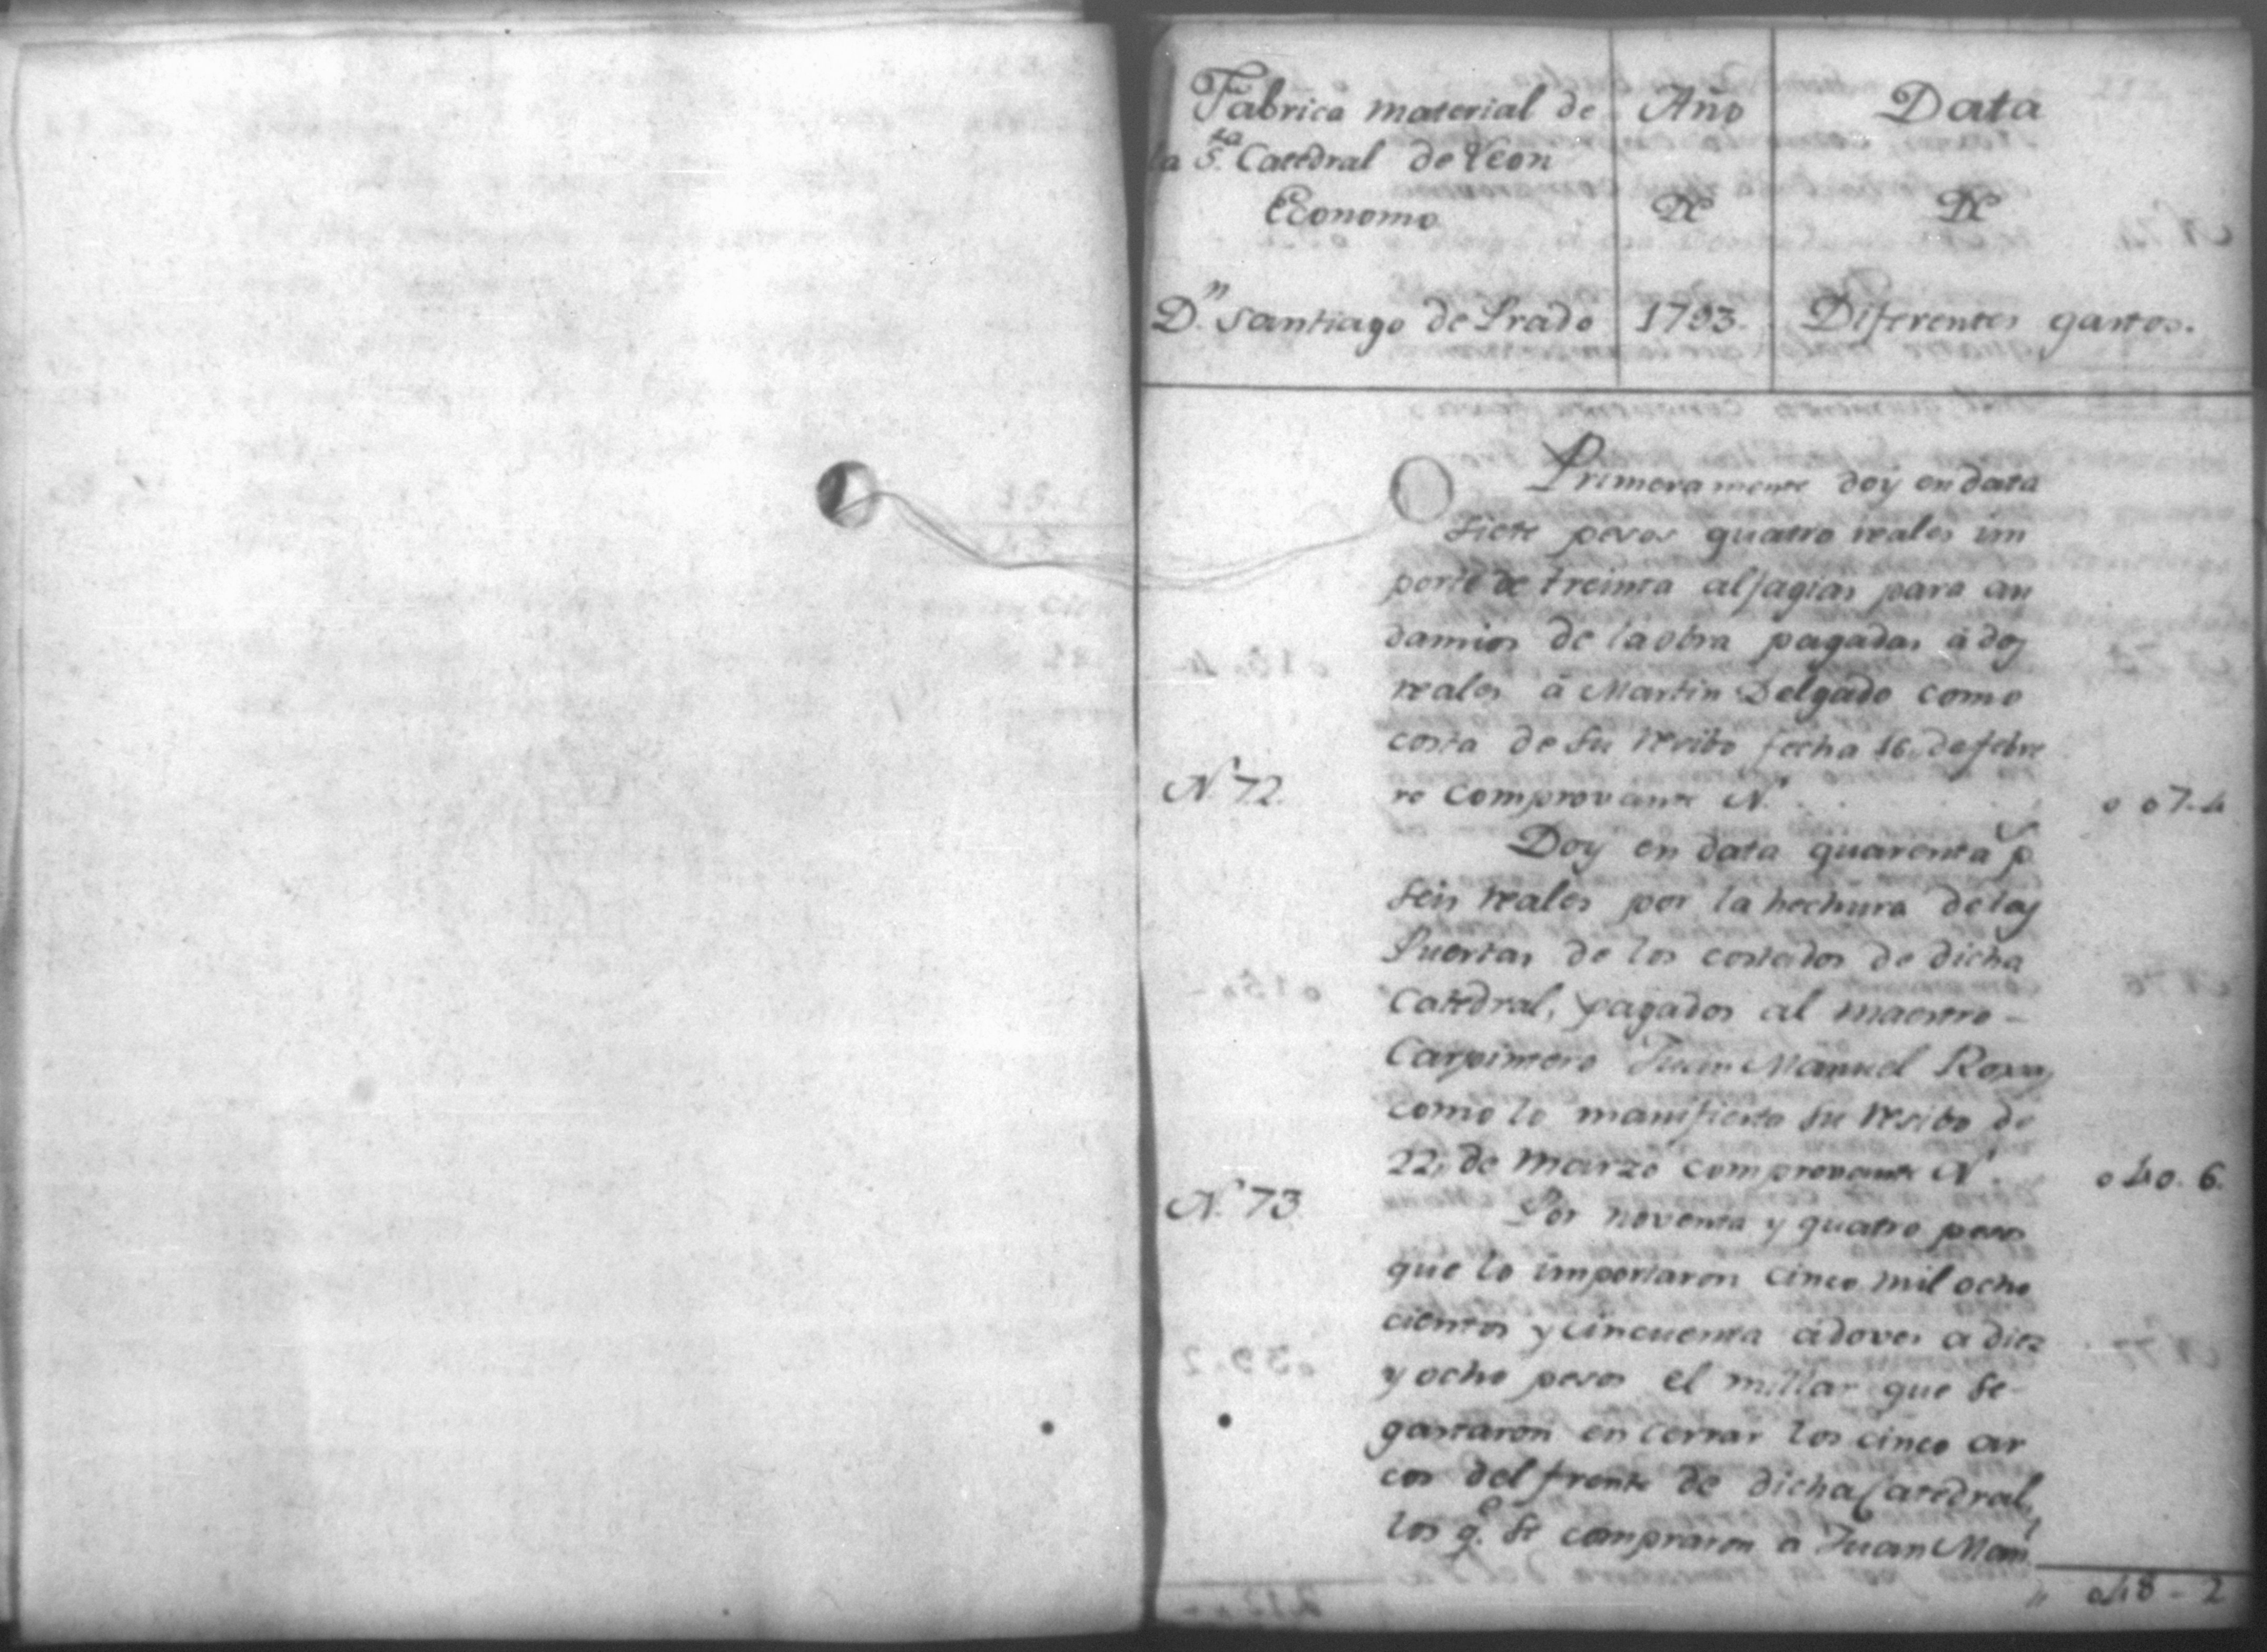 Fabrica material de
la S.ta Catedral de Leon
Economo
D.n Santiago de Prado
Año
De
1793.
Data
De
Diferentes gastos.
Primeramente doy en data
siete pesos quatro reales im
porte de treinta alfagias para an
damios de la obra pagadas á dos
reales á Martin Delgado como
costa de su recibo fecha 16, de febre
N. 72. ro comprovante N. o o7-4
Doy en data quarenta p.
seis reales por la hechura de las
Puertas de los costados de dicha
Catedral, pagados al maestro -
Carpintero Juan Manuel Roxas
como lo manifiesta su resibo de
22, de Marzo comprovante N. o40. 6.
N. 73
Por noventa y quatro pesos
que lo importaron cinco mil ocho
cientos y cincuenta adoves a diez
y ocho pesos el millar que se
gastaron en cerrar los cinco ar
cos del frente de dicha Catedral,
los q.e se compraron a Juan Man.l
o48 - 2